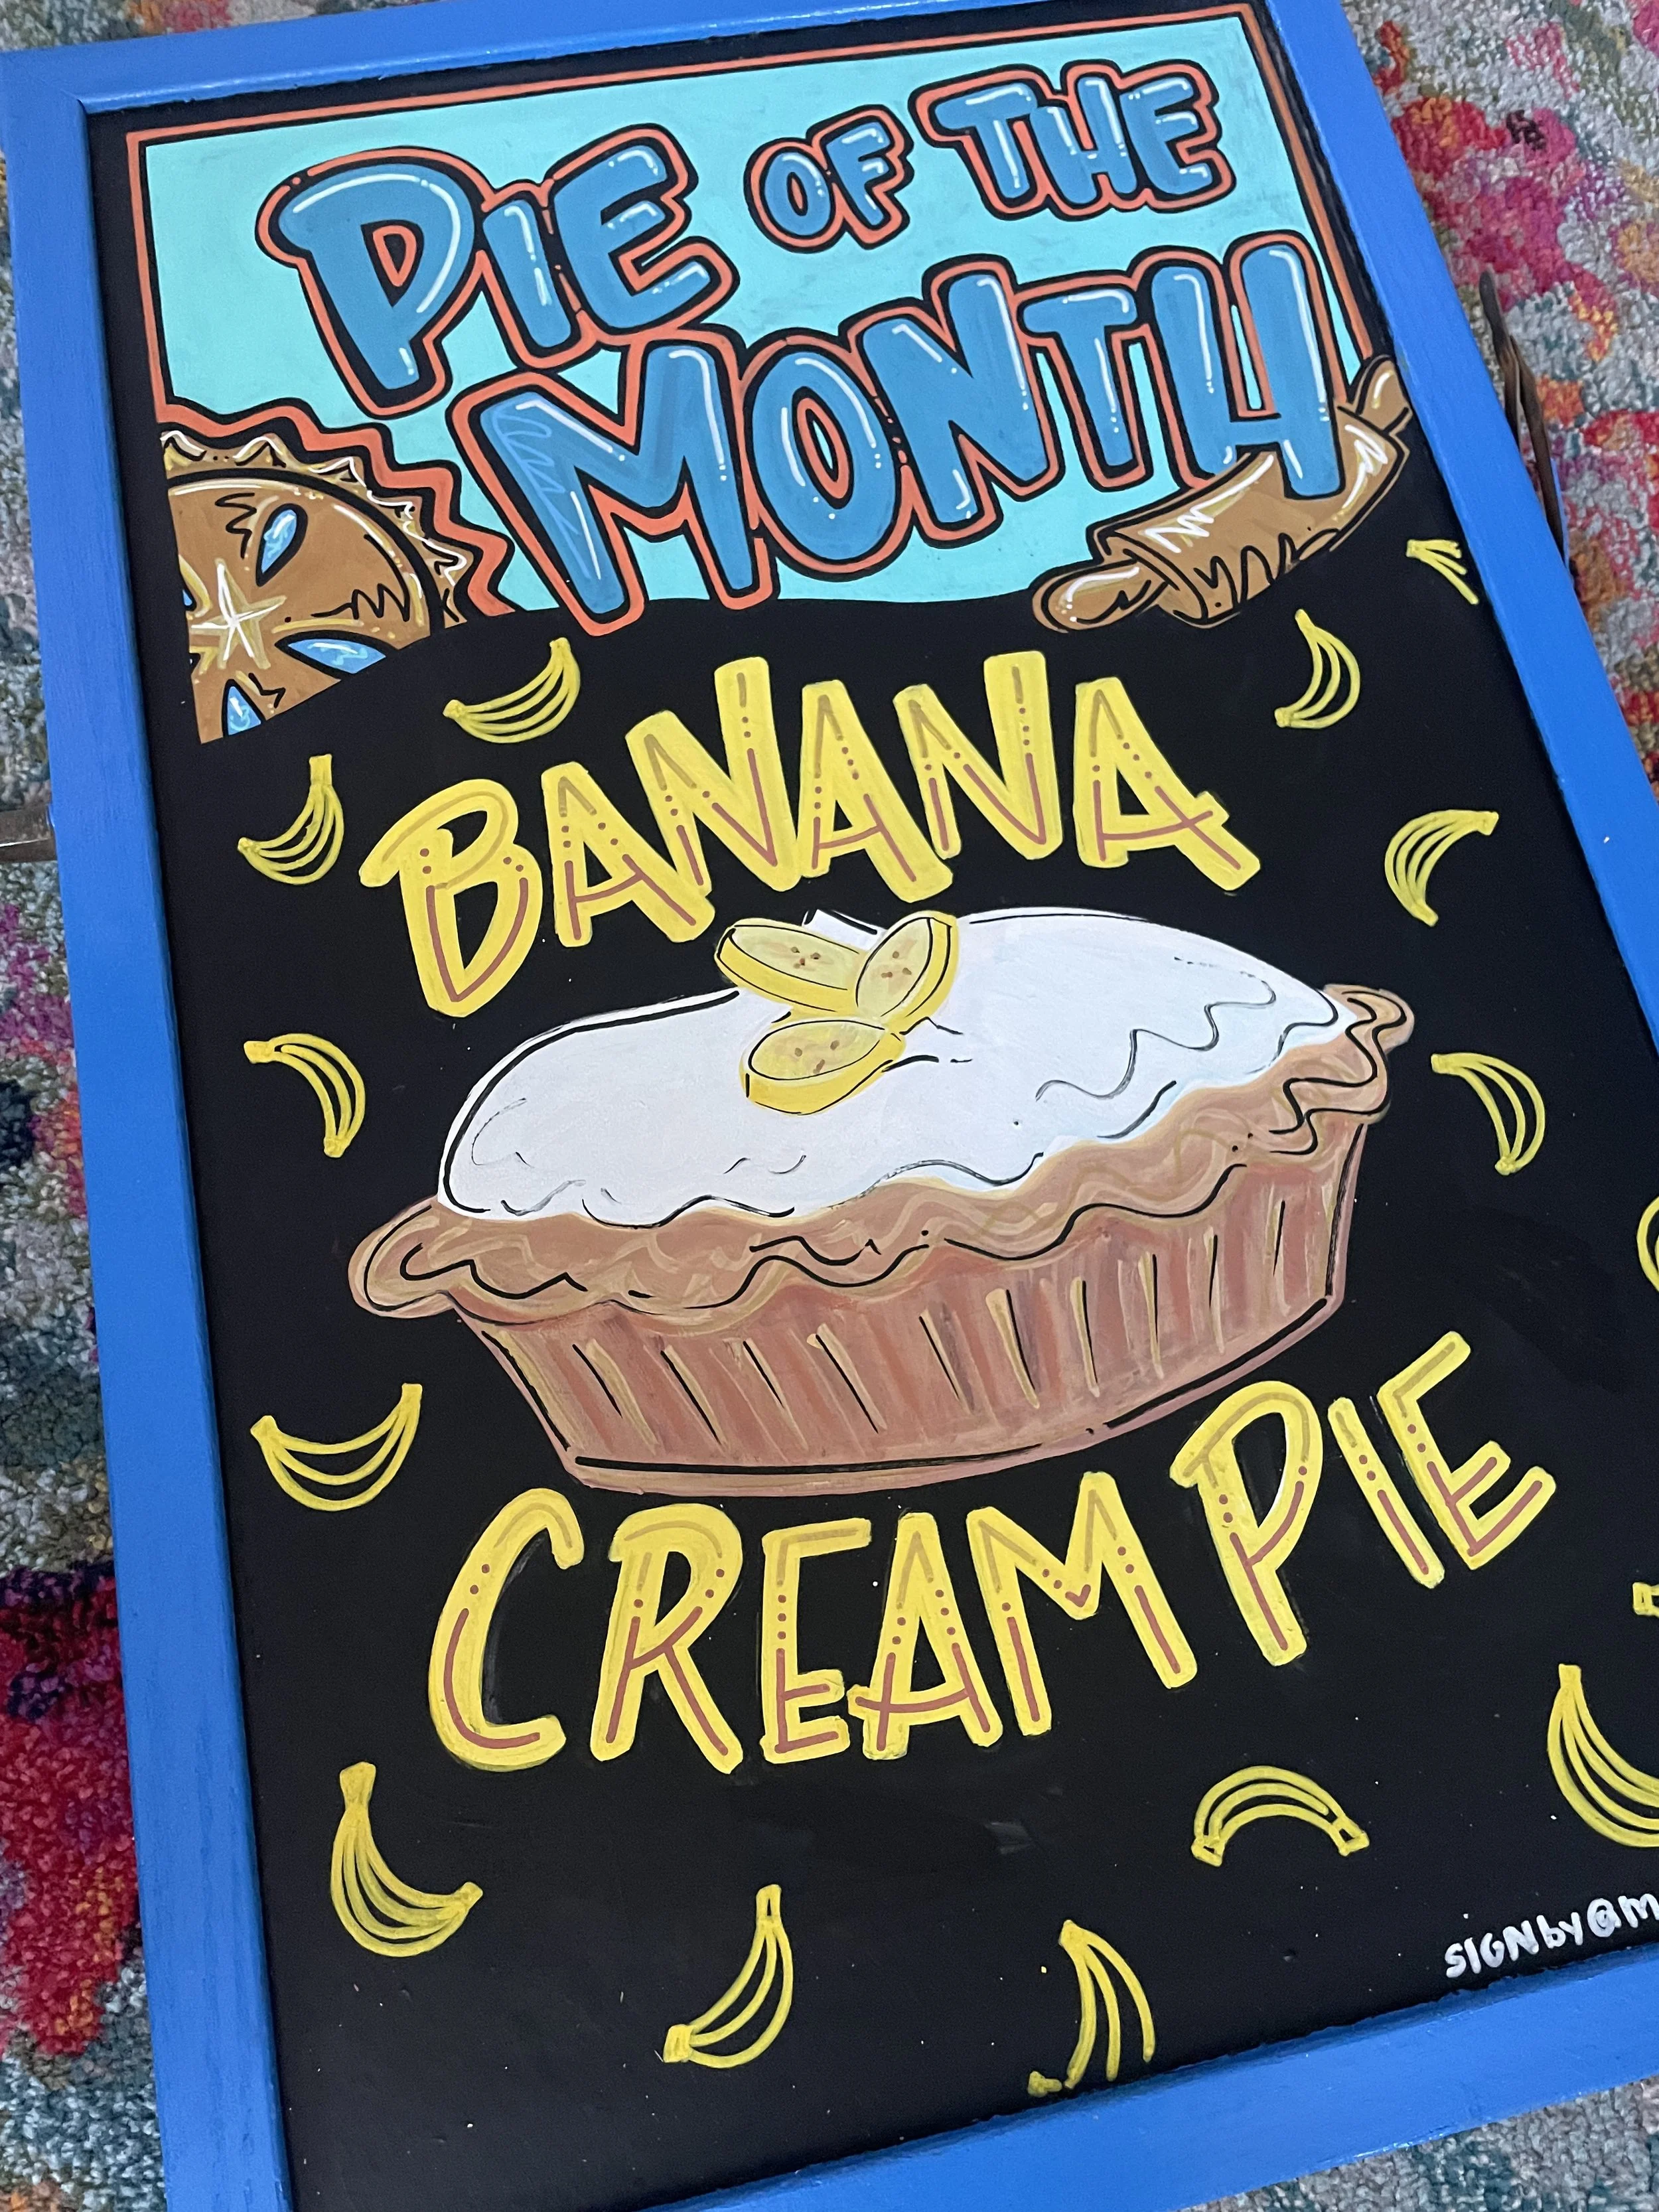 PIE OF THE
MONTH
BANANA
CREAM PIE
SIGN by @m